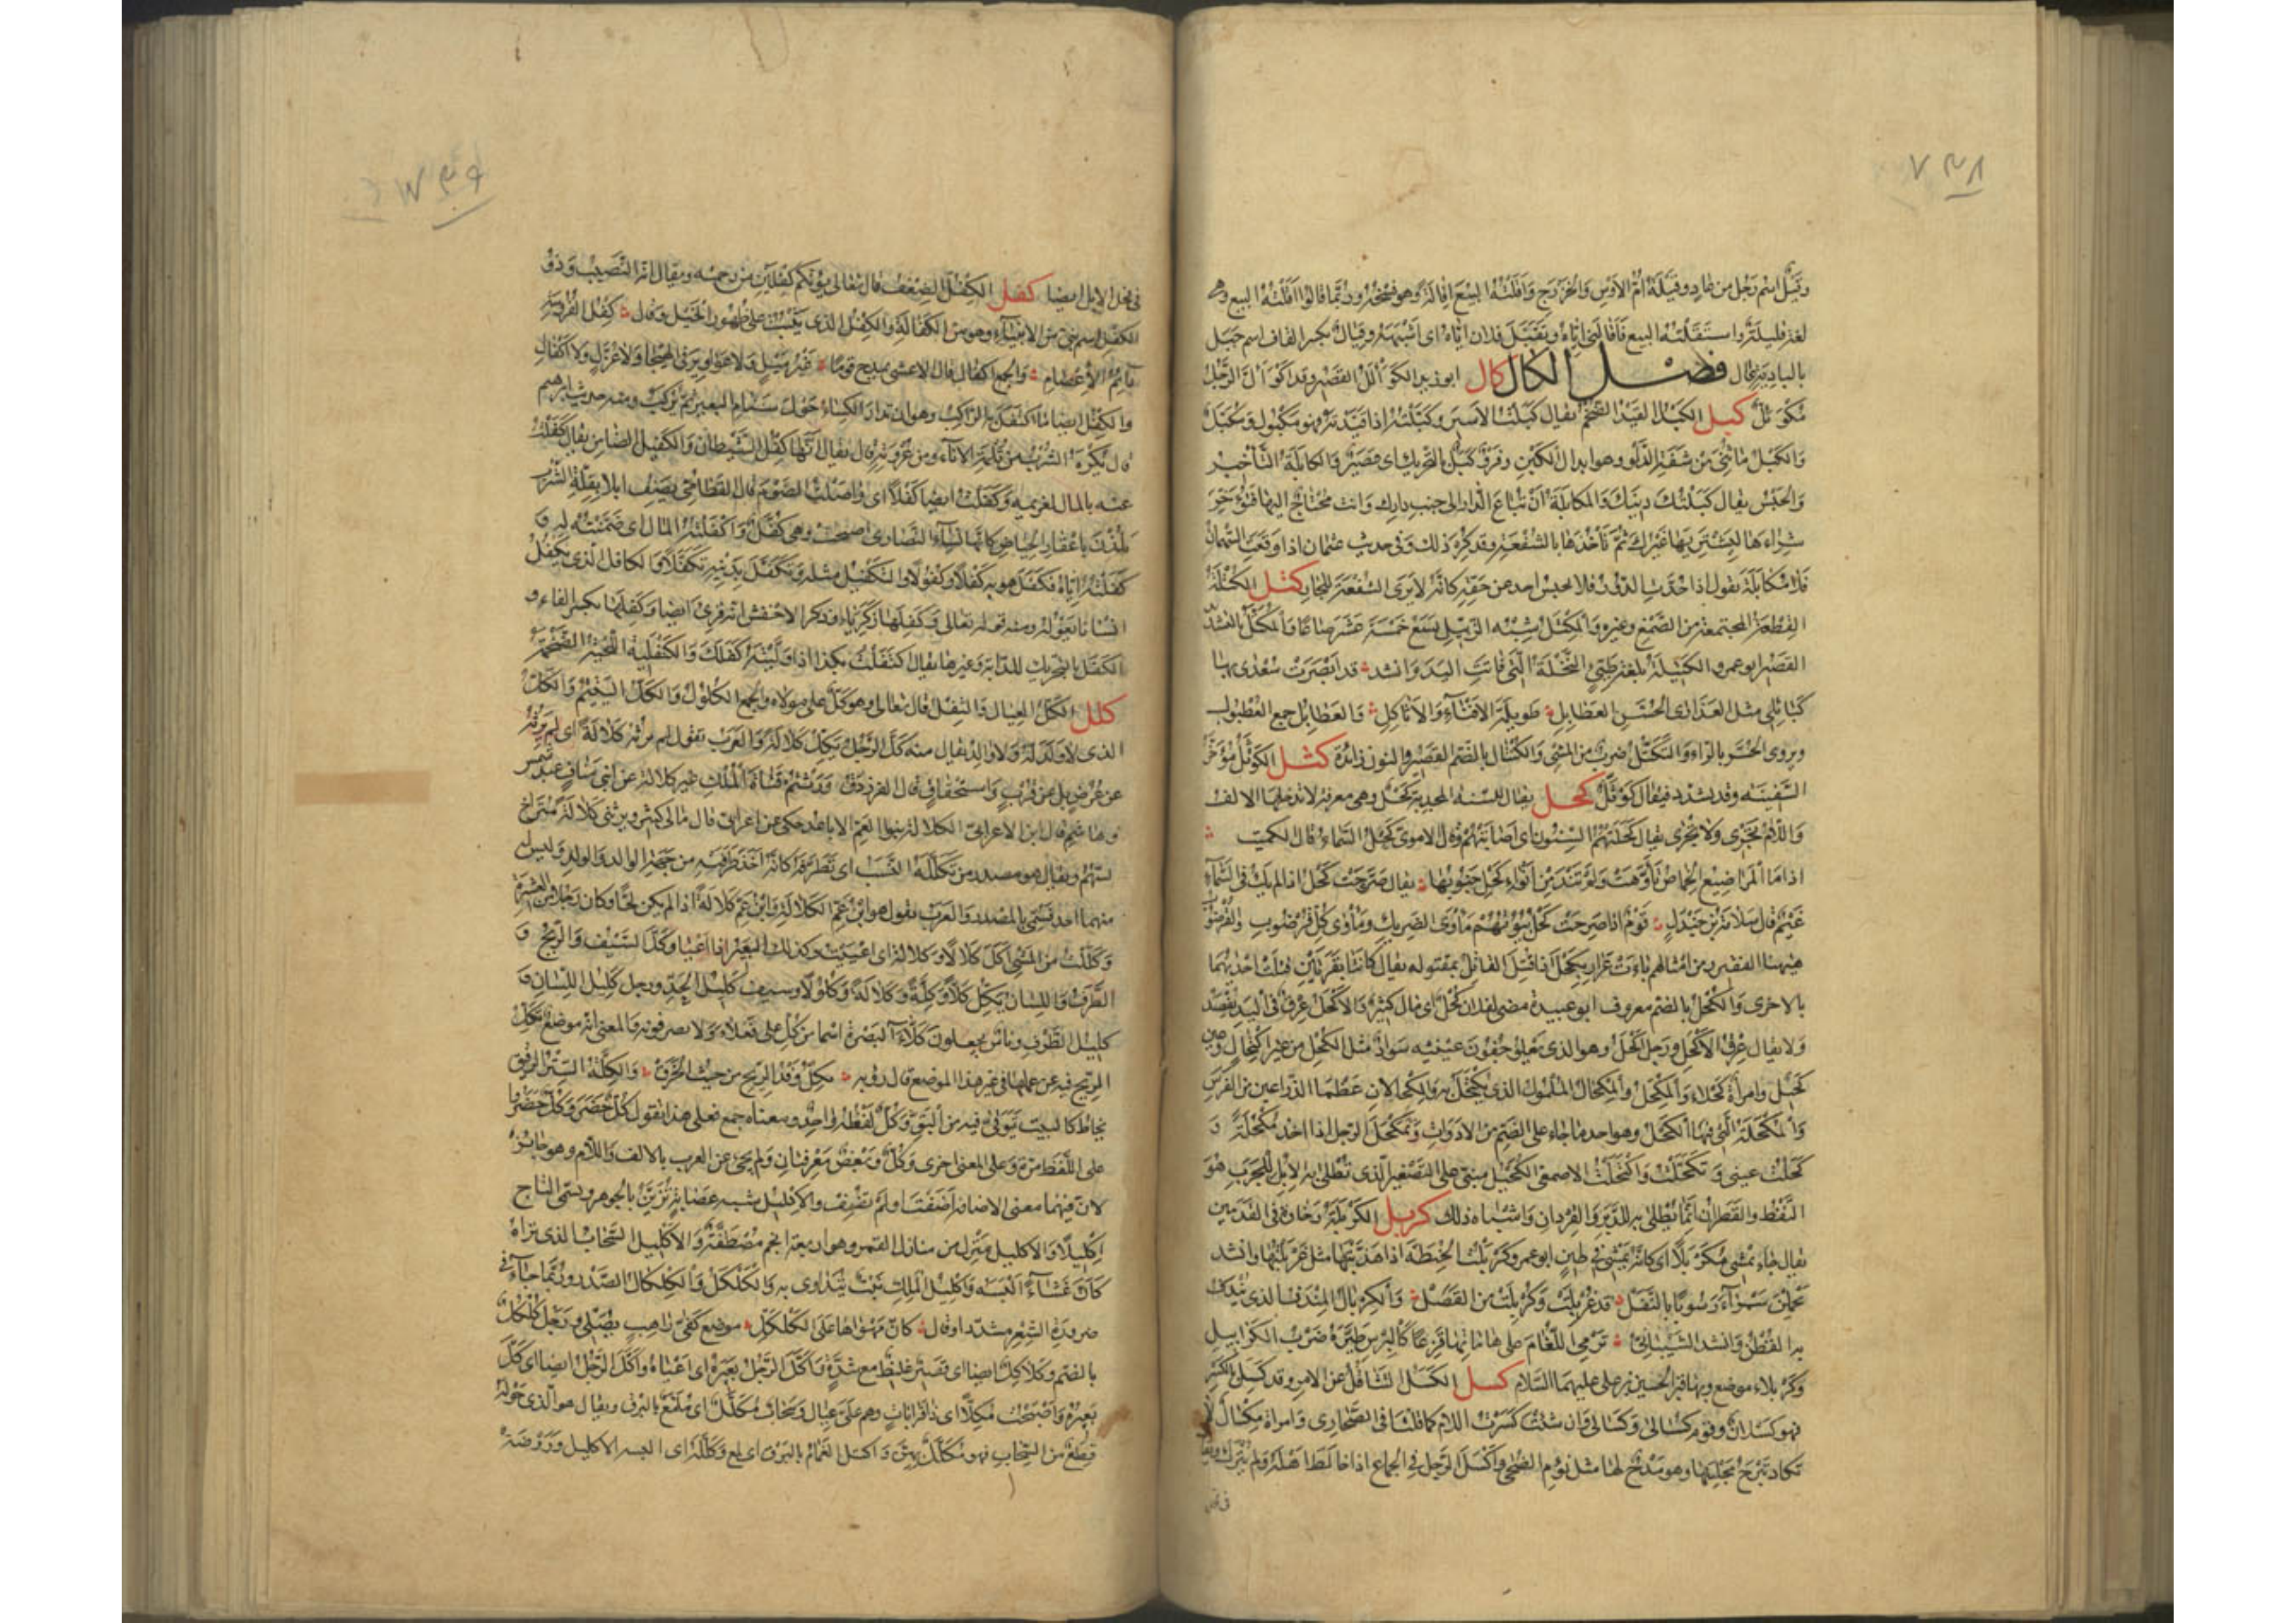 ٧٣٨
وقَيْلٌ اسم رجل من عاد وقَيْلَةُ امّ الاوس والخزرج واقلته البيع اقالةً وهو فسخه وربما قالوا اقلته البيع وهى
لغة قليلة واستقلته البيع فاقالنى اياه وتقيّل فلان اباه اى اشبهه وقِيال بكسر القاف اسم جبل
بالبادية عال فصل الكال كأل ابو زيد الكَوَأْلَلُ القصير وقد اكْوَأَلَّ الرجل
مكوئلٌّ كبل الكبل القيد الضخم يقال كبلت الاسير وكبّلته اذا قيدته فهو مكبول ومكبّل
والكبل ما ثنى من شفة الدلو وهو ابدال الكبن وفرو كبل بالتحريك اى قصير والمكابلة التأخير
والحبس يقال كبلتك دينك والمكابلة ان تباع الدار الى جنب دارك وانت محتاج اليها فتؤخر
شراءها ليشتريها غيرك ثم تأخذها بالشفعة وقد كره ذلك وفى حديث عثمان اذا وقعت السهمان
فلا مكابلة يقول اذا حدّت الدور فلا يحبس احد عن حقه كانه لا يرى الشفعة للجار كتل الكتلة
القطعة المجتمعة من الصمغ وغيره والمكتل شبه الزبيل يسع خمسة عشر صاعا والمكتّل بالتشديد
القصير ابو عمرو الكتيلة بلغة طيّئ النخلة التى فاتت اليد وانشد قد ابصرت سعدى بها
كتائلى مثل العذارى الحسن العطابل طويلة الاقناء والاثاكل والعطابل جمع العطبول
ويروى الحسر بالراء والتكتل ضرب من المشى والكنتال بالضم القصير والنون زائدة كثل الكوثل مؤخر
السفينة وقد يشدد فيقال كوثلّ كحل يقال للسنة المجدبة كحل وهى معرفة لا تدخلها الالف
واللام تجرى ولا تجرى يقال كحلتهم السنون اى اصابتهم وقال الاموى كحل السماء قال الكميت
اذا ما المراضيع الخماص تأوّهت ولم تند من انواء كحل جنوبها يقال صرّحت كحل اذا لم يك فى السماء
غيم قال سلامة بن جندل قوم اذا صرحت كحل بيوتهم مأوى الضريك ومأوى كل قرضوب والقرضوب
هيهنا الفقير ومن امثالهم باءت عرار بكحل اذا قتل القاتل بمقتوله يقال كانتا بقرتين قتلت احديهما
بالاخرى والكحل بالضم معروف ابو عبيدة مضى لفلان كحل اى مال كثير والاكحل عرق فى اليد يفصد
ولا يقال عرق الاكحل ورجل اكحل وهو الذى يعلو جفون عينيه سواد مثل الكحل من غير اكتحال وعين
كحيل وامرأة كحلاء والمكحل والمكحال الملمول الذى يكتحل به والمكحالان عظما الذراعين من الفرس
والمكحلة التى فيها الكحل وهو احد ما جاء على الضم من الادوات وتمكحل الرجل اذا اخذ مكحلة و
كحلت عينى وتكحلت واكتحلت الاصمعى الكحيل مبنى على التصغير الذى تطلى به الابل للجرب هو
النفط والقطران انما يطلى به للدبر والقردان واشباه ذلك كربل الكربلة رخاوة فى القدمين
يقال جاء يمشى مكربلا اى كانه يمشى فى طين ابو عمرو كربلت الحنطة اذا هذبتها مثل غربلتها وانشد
يحملن سمراء رسوبا بالنقل قد غربلت وكربلت من القصل والكربال المندف الذى يندف
به القطن وانشد الشيبانى ترمى اللغام على هاماتها قزعا كالبرس طيّره ضرب الكرابيل
وكربلاء موضع وبها قبر الحسين بن على عليهما السلام كسل الكسل التثاقل عن الامر وقد كسل بالكسر
فهو كسلان وقوم كسالى وكسالى وان شئت كسرت اللام كما قلنا فى الصحارى وامراة مكسال لا
تكاد تبرح مجلسها وهو مدح لها مثل نؤم الضحى واكسل الرجل فى الجماع اذا خالط اهله ولم ينزل ويقال
فى فحل
٧٣٩
فى فحل الابل ايضا كفل الكفل الضعف قال تعالى يؤتكم كفلين من رحمته ويقال انه النصيب وذو
الكفل اسم نبى من الانبياء وهو من الكفالة والكفل الذى لا يثبت على ظهور الخيل وقال كفل الفروسة
دائم الاعصام والجمع اكفال قال الاعشى يمدح قوما غير ميل ولا عواوير فى الهيجا ولا عزل ولا اكفال
والكفل ايضا ما اكتفل به الراكب وهو ان يدار الكساء حول سنام البعير ثم يركب ومنه حديث ابرهيم
قال يكره الشرب من ثلمة الاناء ومن عروته قال يقال انها كفل الشيطان والكفيل الضامن يقال كفلت
عنه بالمال لغريمه وكفلت ايضا كفلا اى واصلت الصوم قال القطامى يصف ابلا بقلة الشرب
يلذن باعقار الحياض كانها نساء النصارى اصبحت وهى كفّل واكفلته المال اى ضمنته له و
كفلته اياه فكفل هو به كفلا وكفولا والتكفيل مثله وتكفل بدينه تكفلا والكافل الذى يكفل
انسانا يعوله ومنه قوله تعالى وكفلها زكرياء وذكر الاخفش انه قرئ ايضا وكفلها بكسر الفاء و
الكفل بالتحريك للدابة وغيرها يقال اكتفلت بكذا اذا ولّيته كفلك والكنفليلة اللحية الضخمة
كلل الكل العيال والثقل قال تعالى وهو كل على مولاه والجمع الكلول والكل اليتيم والكل
الذى لا ولد له ولا والد يقال منه كل الرجل يكل كلالة والعرب تقول لم يرثه كلالة اى لم يرثه
عن عرض بل عن قرب واستحقاق قال الفرزدق ورثتم قناة الملك غير كلالة عن ابنى مناف عبد شمس
وهاشم قال ابن الاعرابى الكلالة بنو العم الاباعد حكى عن اعرابى قال مالى كثير ويرثنى كلالة متراخ
نسبهم ويقال هو مصدر من تكلله النسب اى تطرفه كانه اخذ طرفيه من جهة الوالد والولد وليس له
منهما احد فسمى بالمصدر والعرب تقول هو ابن عم الكلالة وابن عم كلالة اذا لم يكن لحّا وكان رجلا من العشيرة
وكللت من المشى اكلّ كلالا وكلالة اى اعييت وكذلك البعير اذا اعيا وكل السيف والريح و
الطرف واللسان يكل كلا وكلة وكلالة وكلولا وسيف كليل الحد ورجل كليل اللسان و
كليل الطرف وناس يجعلون كلّاء البصرة اسما من كلّ على فعلاء ولا يصرفونه والمعنى انه موضع تكل
الريح فيه عن عملها فى غير هذا الموضع قال رؤبة يكل وفد الريح من حيث انخرق والكلة الستر الرقيق
يخاط كالبيت يتوقى فيه من البق وكل لفظه واحد ومعناه جمع فعلى هذا تقول كل حضر وكل حضروا
على اللفظ مرة وعلى المعنى اخرى وكل وبعض معرفتان ولم يجئ عن العرب بالالف واللام وهو جائز
لان فيهما معنى الاضافة اضفت او لم تضف والاكليل شبه عصابة تزين بالجوهر ويسمى التاج
اكليلا والاكليل منزل من منازل القمر وهو اربعة انجم مصطفة والاكليل السحاب الذى تراه
كأن غشاء البسه واكليل الملك نبت يتداوى به والكلكل والكلكال الصدر وربما جاء فى
ضرورة الشعر مشددا وقال كأن مهواها على الكلكلّ موضع كفى راهب يصلى ورجل كلكل
بالضم وكلاكل ايضا اى قصير غليظ مع شدة واكل الرجل بعيره اى اعياه واكل الرجل ايضا اى كل
بعيره واصبحت مكلا اى ذا قرابات وهم على عيال وسحاب مكلل اى ملمع بالبرق ويقال هو الذى حوله
قطع من السحاب فهو مكلل بهن واكتل الغمام بالبرق اى لمع وكلله اى البسه الاكليل وروضة